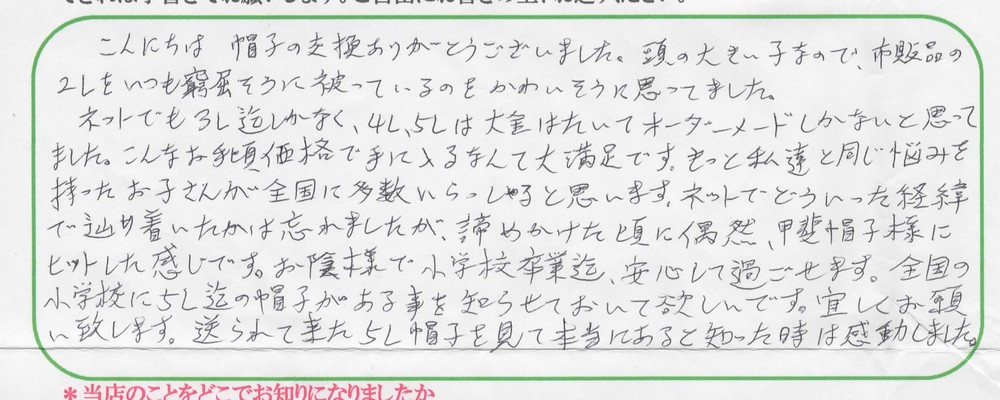 こんにちは 帽子の支換ありがとうございました。頭の大きい子なので、市販品の
2Lをいつも窮屈そうに被っているのをかわいそうに思ってました。
ネットでも3L迄しかなく、4L、5Lは大金はたいてオーダーメードしかないと思って
ました。こんなお手頃価格で手に入るなんて大満足です。もっと私達と同じ悩みを
持ったお子さんが全国に多数いらっしゃると思います。ネットでどういった経緯
で辿り着いたかは忘れましたが、諦めかけた頃に偶然、甲斐帽子様に
ヒットした感じです。お陰様で小学校卒業迄、安心して過ごせます。全国の
小学校に5L迄の帽子がある事を知らせておいて欲しいです。宜しくお願
い致します。送られて来た5L帽子を見て本当にあると知った時は感動しました。
*当店のことをどこでお知りになりましたか